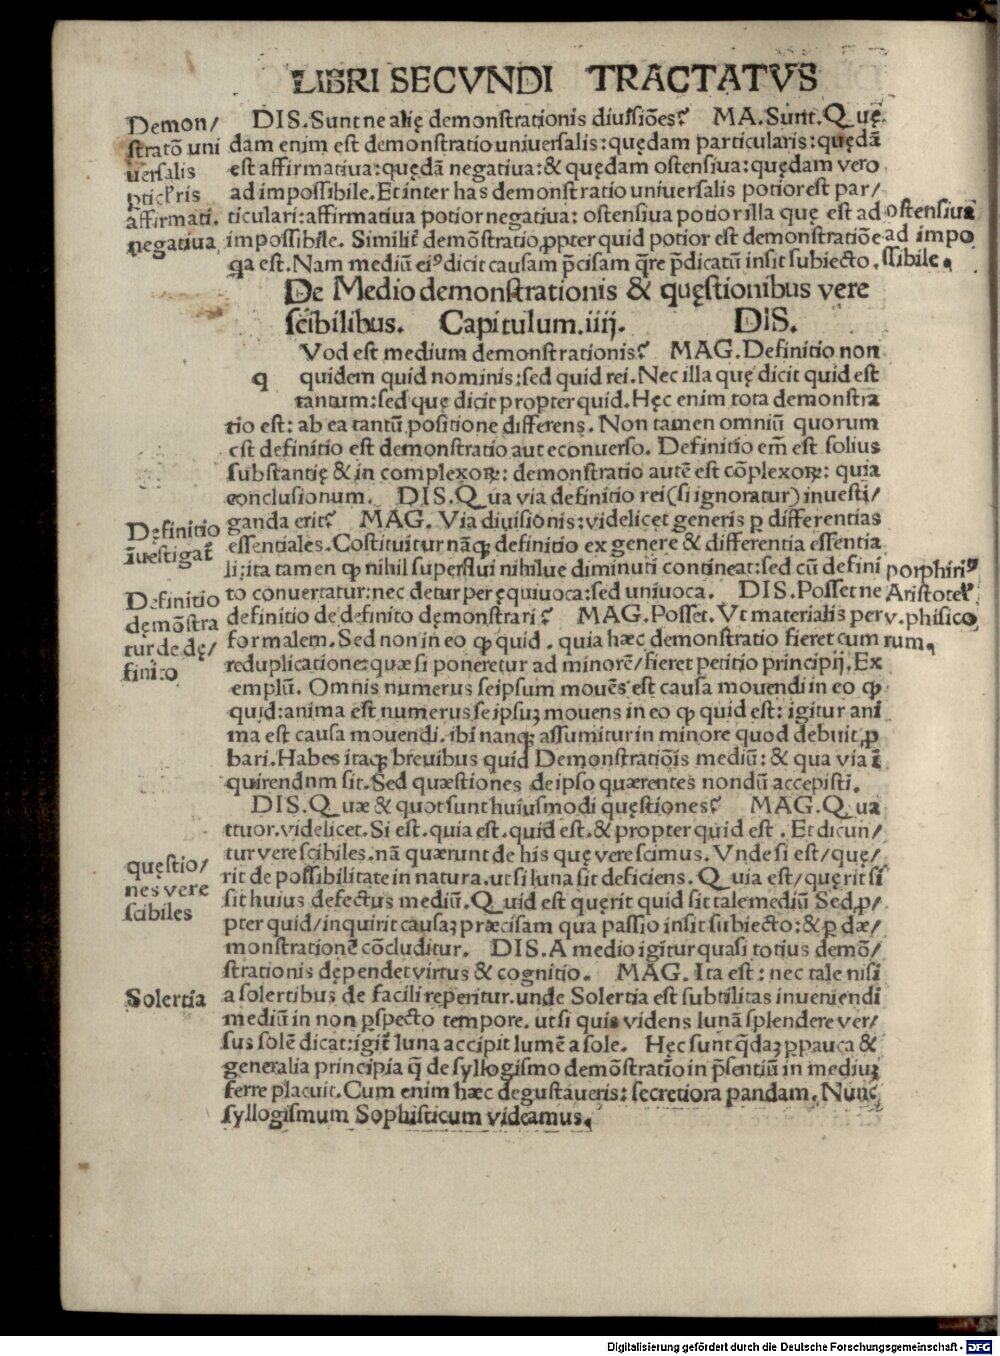 LIBRI SECVNDI TRACTATVS
Demon/
stratō uni
uersalis
ꝑticl'ris
affirmati.
negatiua
DIS. Sunt ne alię demonstrationis diuisiões? MA. Sunt. Quę-
dam enim est demonstratio uniuersalis: quędam particularis: quędā
est affirmatiua: quędā negatiua: & quędam ostensiua: quędam vero
ad impossibile. Et inter has demonstratio uniuersalis potior est par/
ticulari: affirmatiua potior negatiua: ostensiua potior illa quę est ad
impossibile. Similit̃ demōstratio ꝓpter quid potior est demonstratiōe
qa est. Nam mediū eiꝰ dicit causam p̄cisam q̄re p̄dicatū insit subiecto.
ostensiua
ad impo
ssibile.
De Medio demonstrationis & quęstionibus vere
scibilibus. Capitulum.iiij. DIS.
q Vod est medium demonstrationis? MAG. Definitio non
quidem quid nominis: sed quid rei. Nec illa quę dicit quid est
tantum: sed quę dicit propter quid. Hęc enim tota demonstra
tio est: ab ea tantū positione differens. Non tamen omniū quorum
est definitio est demonstratio aut econuerso. Definitio em̄ est solius
substantię & in complexoꝝ: demonstratio autē est cōplexoꝝ: quia
conclusionum. DIS. Qua via definitio rei (si ignoratur) inuesti/
ganda erit? MAG. Via diuisionis: videlicet generis ꝑ differentias
essentiales. Costituitur nāqꝫ definitio ex genere & differentia essentia
li: ita tamen ꝙ nihil superflui nihilue diminuti contineat: sed cū defini
to conuertatur: nec detur per ęquiuoca: sed uniuoca. DIS. Posset ne
definitio de definito dęmonstrari? MAG. Posset. Vt materialis per
formalem. Sed non in eo ꝙ quid. quia hæc demonstratio fieret cum
reduplicatione: quæ si poneretur ad minorē/ fieret petitio principij. Ex
emplū. Omnis numerus seipsum mouēs est causa mouendi in eo ꝙ
quid: anima est numerus seipsuꝫ mouens in eo ꝙ quid est: igitur ani
ma est causa mouendi. ibi nanqꝫ assumitur in minore quod debuit ꝓ
bari. Habes itaqꝫ breuibus quid Demonstratiōis mediū: & qua via ī
quirendnm sit. Sed quæstiones de ipso quærentes nondū accepisti.
Definitio
īuestigat̃
Definitio
demōstra
tur de dę/
finito
porphiriꝰ
Aristotel'
v. phisico
rum.
DIS. Quæ & quot sunt huiusmodi quęstiones? MAG. Qua
ttuor. videlicet. Si est. quia est. quid est. & propter quid est. Et dicun/
tur vere scibiles. nā quærunt de his quę vere scimus. Vnde si est/ quę/
rit de possibilitate in natura. ut si luna sit deficiens. Quia est/ quęrit si
sit huius defectus mediū. Quid est quęrit quid sit tale mediū Sed ꝓ/
pter quid/ inquirit causaꝫ præcisam qua passio insit subiecto: & ꝑ dæ/
monstrationē cōcluditur. DIS. A medio igitur quasi totius demō/
strationis dępendet virtus & cognitio. MAG. Ita est: nec tale nisi
a solertibus de facili reperitur. unde Solertia est subtilitas inueniendi
mediū in non ꝑspecto tempore. ut si quis videns lunā splendere ver/
sus solē dicat: igit̃ luna accipit lumē a sole. Hęc sunt q̄daꝫ ꝑpauca &
generalia principia q̄ de syllogismo demōstratio in p̄sentiū in mediuꝫ
ferre placuit. Cum enim hæc degustaueris: secretiora pandam. Nunc
syllogismum Sophisticum videamus.
quęstio/
nes vere
scibiles
Solertia
Digitalisierung gefördert durch die Deutsche Forschungsgemeinschaft - DFG